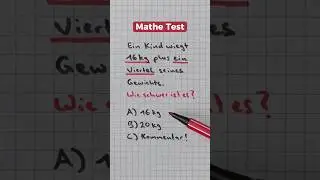 Mathe Test
Ein Kind wiegt
16 kg plus ein
Viertel seines
Gewichts.
Wie schwer ist es?
A) 16 kg
B) 20 kg
C) Kommentar!